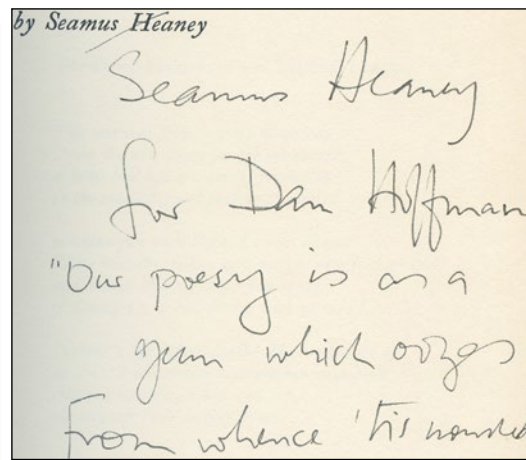 by Seamus Heaney
Seamus Heaney
for Dan Hoffman
"Our poesy is as a
gum which oozes
From whence 'tis nourished